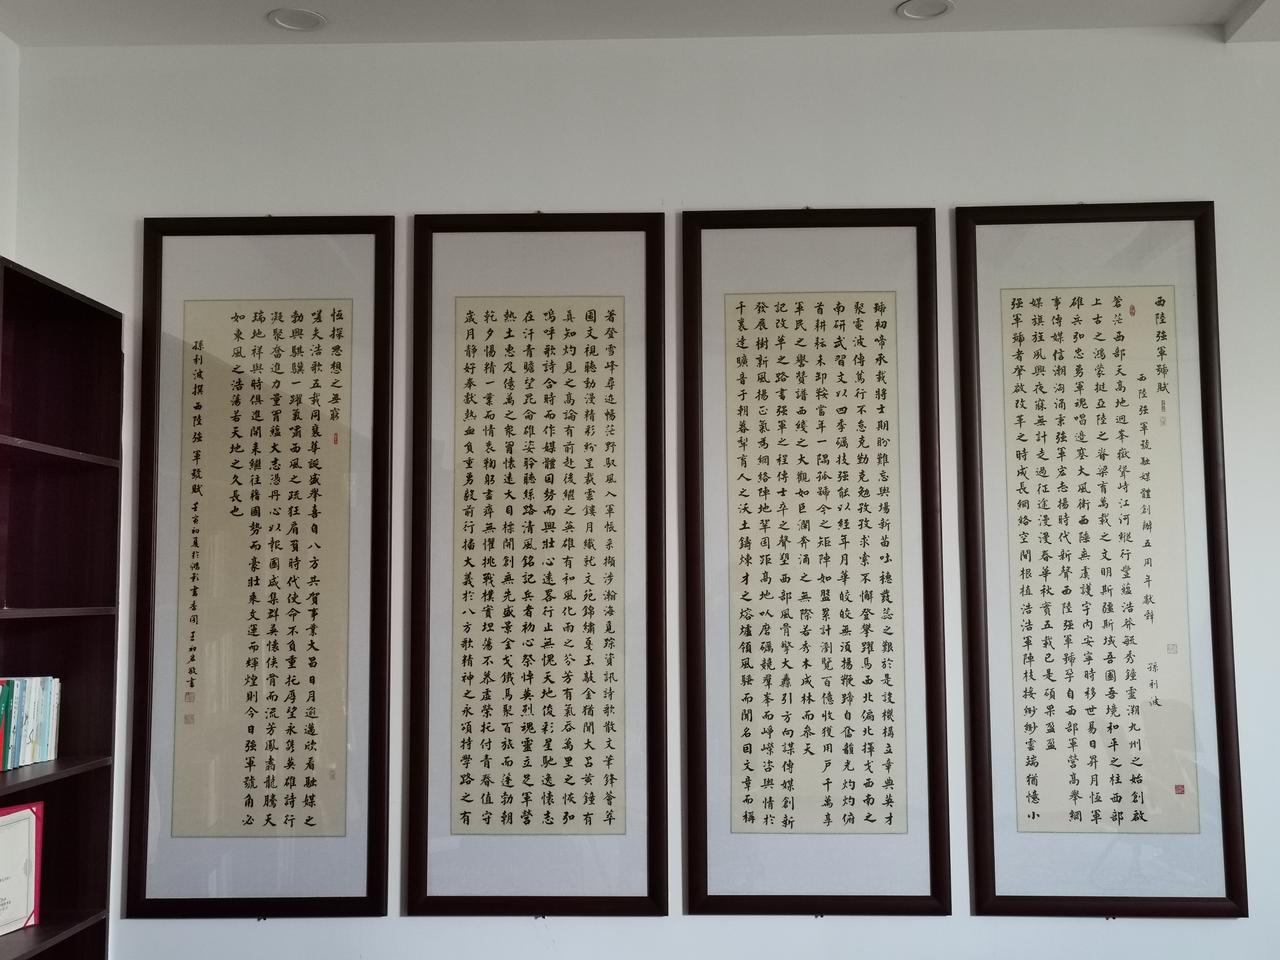 西陸强軍號賦
西陸强軍號融媒體創辦五周年獻辞
孫利波
蒼茫西部天高地迥峯嶽聳峙江河縱行豐蘊浩莽毓秀鍾靈溯九州之始創啟
上古之鴻蒙挺亞陸之脊梁育萬載之文明斯疆斯域吾國吾境和平之柱西部
雄兵弘忠勇軍魂唱邊塞大風衛西陲無虞護宇内安寧時移世易日昇月恆軍
事傳媒信潮洶涌秉强軍宏志揚時代新聲西陸强軍號孕自西部軍營高舉網
媒旗旌夙興夜寐無計走過征途漫漫春華秋實五載已是碩果盈盈
强軍號者肇啟改革之時成長網絡空間根植浩浩軍陣枝接緲緲雲瑞猶憶小
號初啼承載將士期盼難忘與場新苗吐穗發蕊之艱於是設機構立章典英才
聚電波傳萬行不怠克勤克勉孜孜求索不懈登攀躍馬西北偏北揮戈西南之
南研武習文以四季礪技强能以經年月華皎皎無須揚鞭蹄自奮韶光灼灼俯
首耕耘未卸鞍當年一隅孤號今之矩陣如盤累計瀏覽百億收獲用戶千萬享
軍民之譽贊譜西綫之大觀如巨瀾奔涌之無際若秀木成林而參天
記改革之路書强軍之程傳士卒之聲塑西部風骨擎大纛引方向謀傳媒創新
發展樹新風揚正氣為網絡陣地鞏固距高地以磨礪競羣峯而崢嶸咨輿情於
千裏達曠音于朝暮犁育人之沃土鑄煉才之熔爐領風騷而聞名因文章而稱
著登雪峰尋迹暢茫野馭風入軍帳采擷涉瀚海覓踪資訊詩歌散文筆鋒薈萃
圖文視聽動漫精彩紛呈載雲鏤月織就文苑錦繡戛玉敲金猶聞大呂黄鐘有
真知灼見之高論有前赴後繼之英雄有和風化雨之芬芳有氣吞萬里之恢弘
嗚呼歌詩合時而作媒體因勢而興壯心遠畧行止無愧天地俊彩星馳逸懷志
在汗青瞻望昆侖雄姿聆聽絲路清風銘記兵者初心祭悼英烈魂靈立足軍營
熱土惠及億萬之衆胷懷遠大目標開創無先盛景金戈鐵馬聚百旅而蓬勃朝
乾夕惕精一業而情衷鞠躬盡瘁無懼挑戰樸實坦蕩不慕虛榮托付青春值守
歲月静好奉獻熱血負重勇毅前行播大義於八方歌精神之永頌持學路之有
恆探思想之無窮
嗟夫浩歌五載同襄華誕盛舉喜自八方共賀事業大呂日月逾邁欣看融媒之
勃興騏驥一躍氣嘯西風之疏狂肩負時代使命不負重托厚望永雋英雄詩行
凝聚奮進力量胷蘊大志憑丹心以報國咸集群英懷俠骨而流芳鳳翥龍騰天
瑞地祥與時俱進開来繼往藉國勢而豪壯乘文運而輝煌則今日强軍號角必
如東風之浩蕩若天地之久長也
孫利波撰西陸强軍號賦
寅初夏於 書香閣王 敬書